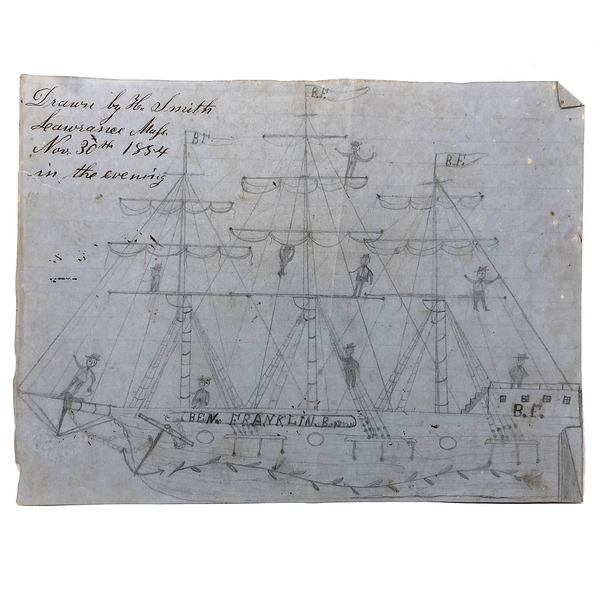 Drawn by H. Smith
Lawrance Mass.
Nov. 30th 1854
in the evening
B.F.
B.F.
B.F.
BEN. FRANKLIN.
B.F.